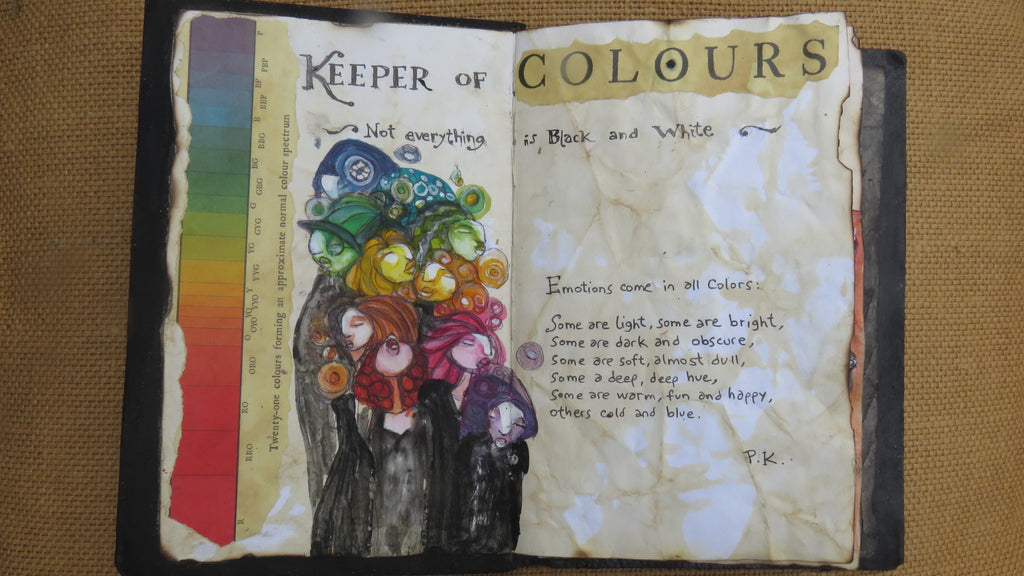 KEEPER OF COLOURS
Not everything is Black and White
P
PBP
BP
BBP
B
BBG
BG
GBG
G
GVG
YG
YYG
Y
YYO
YO
OYO
O
ORO
RO
RRO
R
Twenty-one colours forming an approximate normal colour spectrum
Emotions come in all Colors:
Some are light, some are bright,
Some are dark and obscure,
Some are soft, almost dull,
Some a deep, deep hue,
Some are warm, fun and happy,
others cold and blue.
P.K.